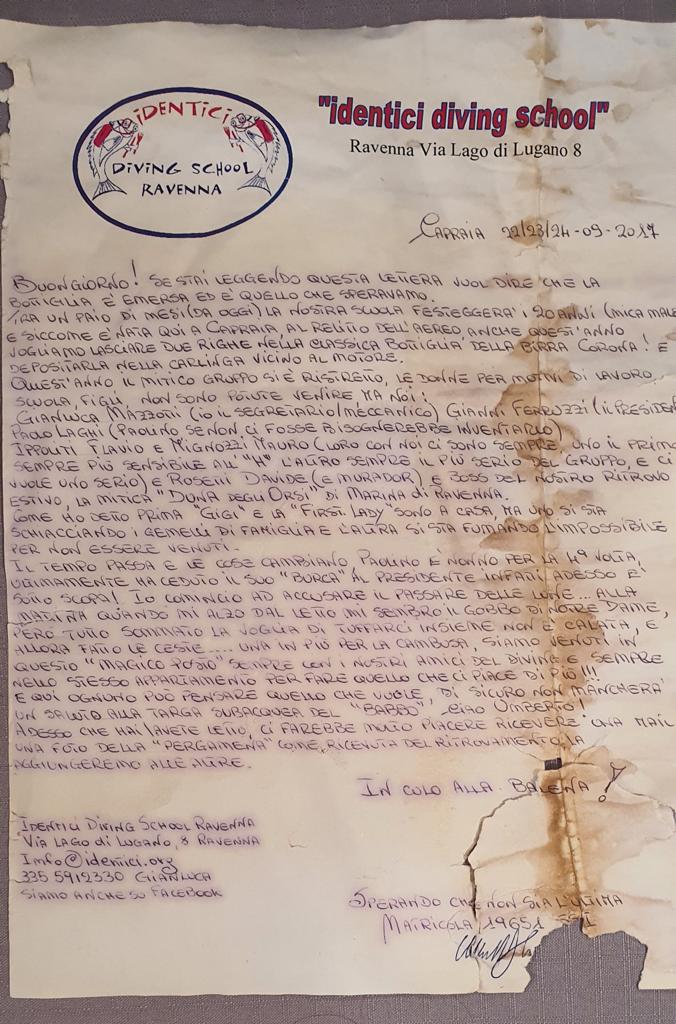 iDENTiCi
DIVING SCHOOL
RAVENNA
"identici diving school"
Ravenna Via Lago di Lugano 8
CAPRAIA 22/23/24-09-2017
BUONGIORNO! SE STAI LEGGENDO QUESTA LETTERA VUOL DIRE CHE LA
BOTTIGLIA È EMERSA ED È QUELLO CHE SPERAVAMO.
TRA UN PAIO DI MESI (DA OGGI) LA NOSTRA SCUOLA FESTEGGERA' i 20 ANNI (MICA MALE
E SICCOME È NATA QUI A CAPRAIA AL RELITTO DELL'AEREO ANCHE QUEST'ANNO
VOGLIAMO LASCIARE DUE RIGHE NELLA CLASSICA BOTTIGLIA DELLA BIRRA CORONA! E
DEPOSITARLA NELLA CARLINGA VICINO AL MOTORE.
QUEST'ANNO IL MITICO GRUPPO SI È RISTRETTO, LE DONNE PER MOTIVI DI LAVORO,
SCUOLA, FIGLI NON SONO POTUTE VENIRE MA NOI!
GIANLUCA MAZZOTTI (IO IL SEGRETARIO/MECCANICO) GIANNI FERRUZZI (IL PRESIDEN
PAOLO LAGHI (PAOLINO SE NON CI FOSSE BISOGNEREBBE INVENTARLO)
IPPOLITI FLAVIO E MIGNOZZI MAURO (LORO CON NOI CI SONO SEMPRE, UNO IL PRIMO
SEMPRE PIÙ SENSIBILE ALL'"H" L'ALTRO SEMPRE IL PIÙ SERIO DEL GRUPPO, E CI
VUOLE UNO SERIO) E ROSETTI DAVIDE (E MURADOR) E BOSS DEL NOSTRO RITROVO
ESTIVO, LA MITICA "DUNA DEGLI ORSI" DI MARINA DI RAVENNA.
COME HO DETTO PRIMA "GIGI" E LA "FIRST LADY" SONO A CASA, MA UNO SI STA
SCHIACCIANDO I GEMELLI DI FAMIGLIA E L'ALTRA SI STA FUMANDO L'IMPOSSIBILE
PER NON ESSERE VENUTI.
IL TEMPO PASSA E LE COSE CAMBIANO, PAOLINO È NONNO PER LA 4ª VOLTA,
ULTIMAMENTE HA CEDUTO IL SUO "BURCA" AL PRESIDENTE INFATTI ADESSO È
SOTTO SCOPA! IO COMINCIO AD ACCUSARE IL PASSARE DELLE LUNE... ALLA
MATTINA QUANDO MI ALZO DAL LETTO MI SEMBRO IL GOBBO DI NOTRE DAME,
PERÒ TUTTO SOMMATO LA VOGLIA DI TUFFARCI INSIEME NON È CALATA, E
ALLORA FATTO LE CESTE.... UNA IN PIÙ PER LA CAMBUSA, SIAMO VENUTI IN
QUESTO "MAGICO POSTO" SEMPRE CON I NOSTRI AMICI DEL DIVING E SEMPRE
NELLO STESSO APPARTAMENTO PER FARE QUELLO CHE CI PIACE DI PIÙ!!
E QUI OGNUNO PUÒ PENSARE QUELLO CHE VUOLE, DI SICURO NON MANCHERA'
UN SALUTO ALLA TARGA SUBACQUEA DEL "BABBO", CIAO UMBERTO!
ADESSO CHE HAI/AVETE LETTO, CI FAREBBE MOLTO PIACERE RICEVERE UNA MAIL
UNA FOTO DELLA "PERGAMENA" COME RICEVUTA DEL RITROVAMENTO, LA
AGGIUNGEREMO ALLE ALTRE.
IN CULO ALLA BALENA!
IDENTICI DIVING SCHOOL RAVENNA
VIA LAGO DI LUGANO, 8 RAVENNA
Imfo@identici.org
335 5912330 GIANLUCA
SIAMO ANCHE SU FACEBOOK
SPERANDO CHE NON SIA L'ULTIMA
MATRICOLA 19651 SSI